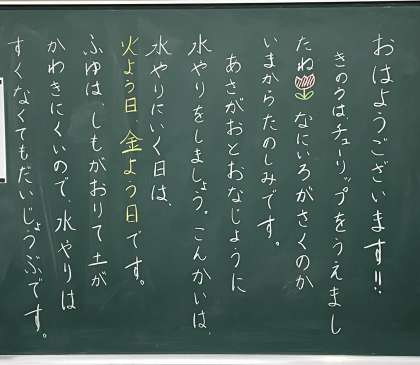 おはようございます!!
きのうはチューリップをうえまし
たね なにいろがさくのか
いまからたのしみです。
あさがおとおなじように
水やりをしましょう。こんかいは、
水やりにいく日は、
火よう日、金よう日です。
ふゆは、しもがおりて土が
かわきにくいので、水やりは
すくなくてもだいじょうぶです。